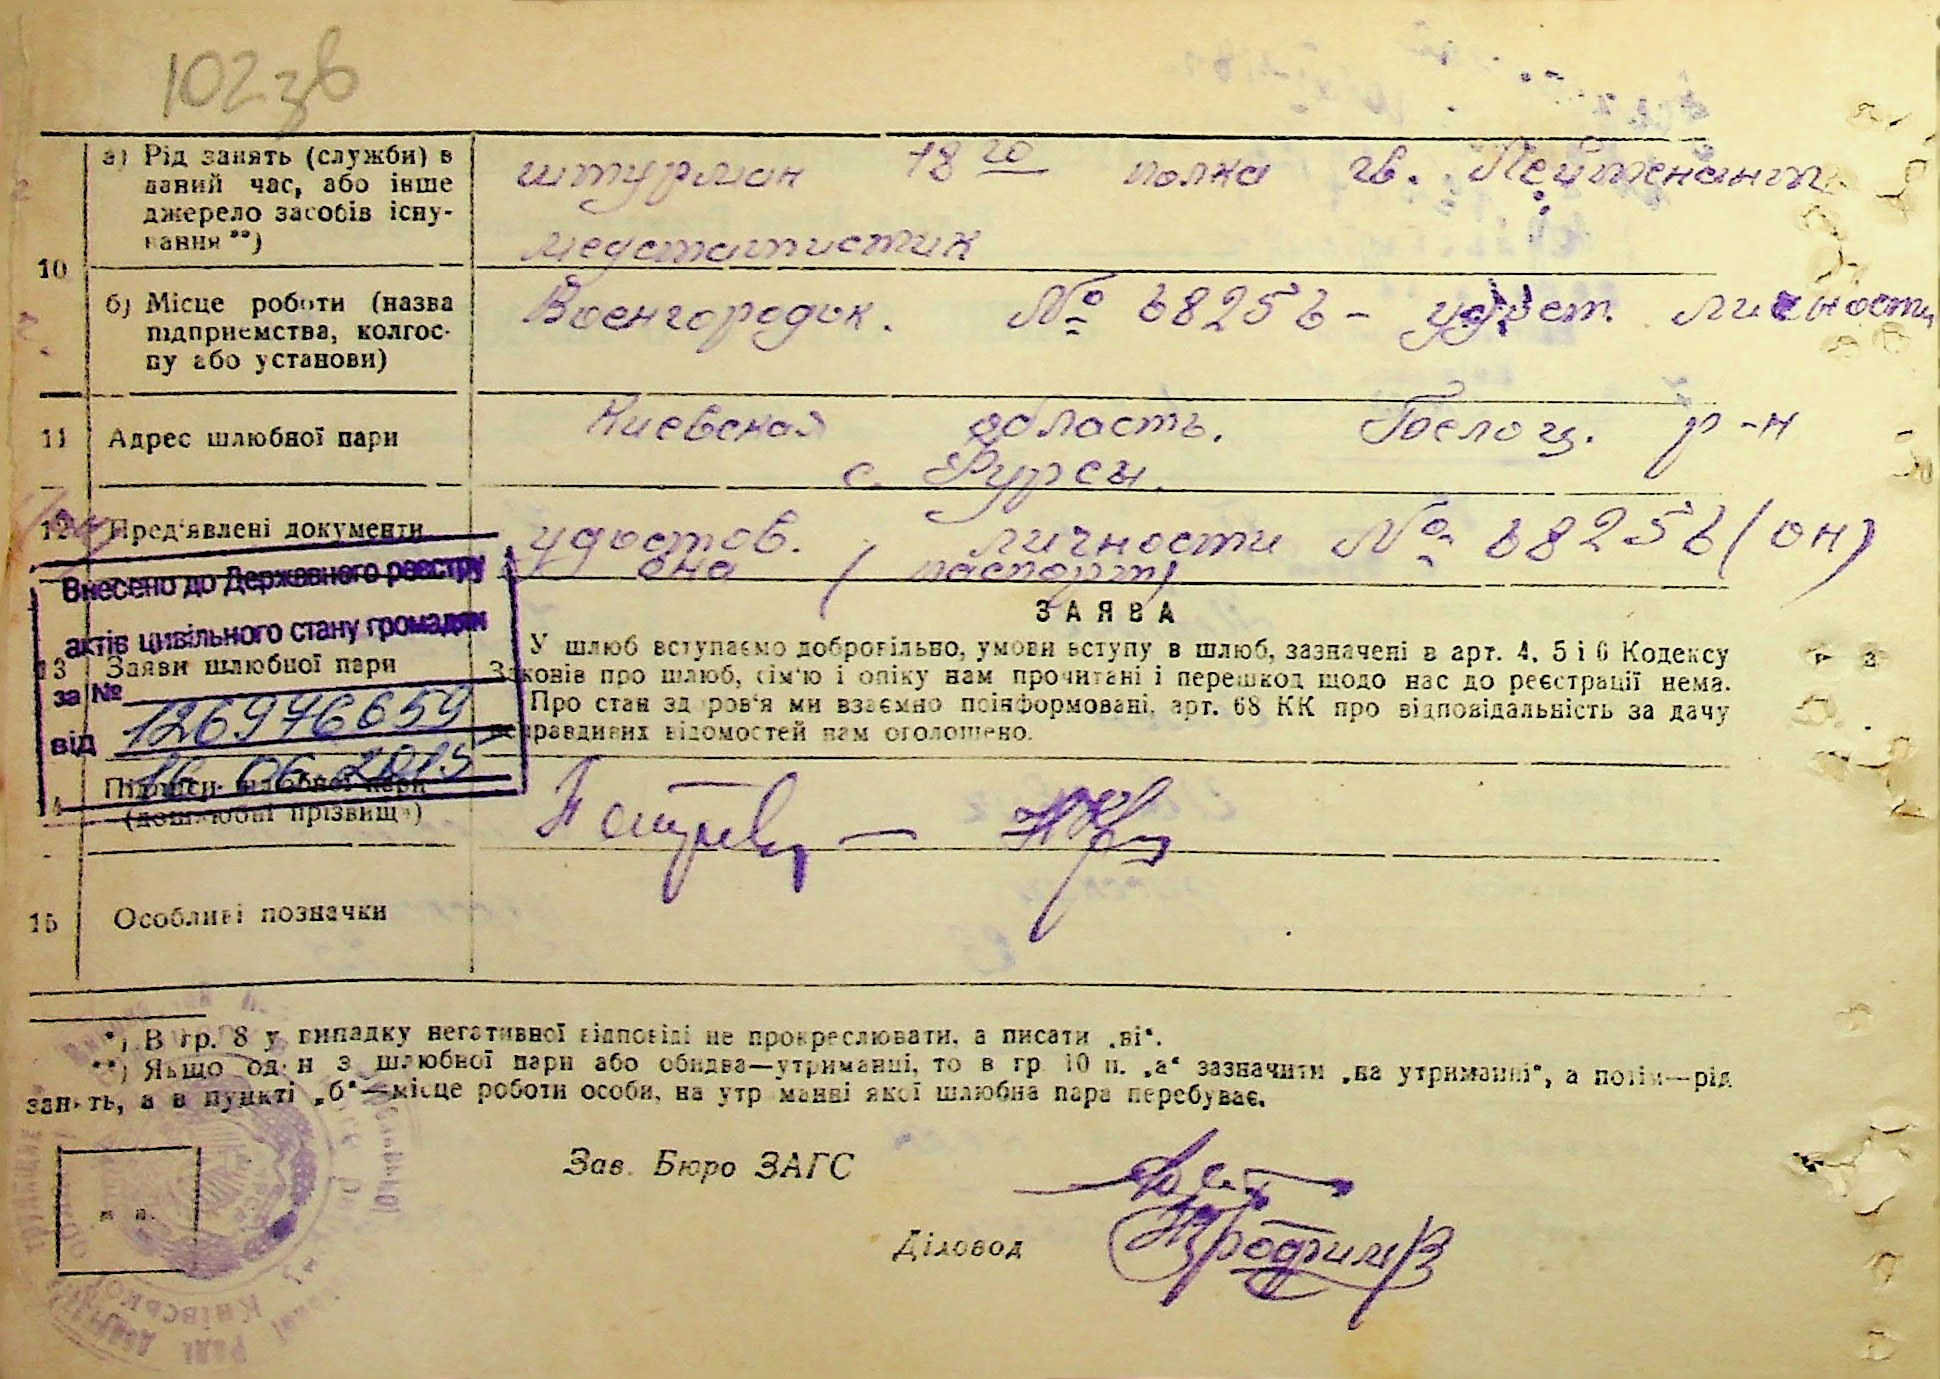 102зв
а) Рід занять (служби) в
даний час, або інше
джерело засобів існу-
вання **)
штурман 18го полка гв. Лейтенант
медстатистик
10
б) Місце роботи (назва
підприємства, колгос-
пу або установи)
Военгородок. № 68256 - удост. личности
11 Адрес шлюбної пари
Киевская область. Белоц. р-н
с. Фурсы.
12 Пред'явлені документи
удостов. личности № 68256 (он)
она (паспорт)
Внесено до Державного реєстру
актів цивільного стану громадян
за № 126976659
від 16.06.2015
13 Заяви шлюбної пари
ЗАЯВА
У шлюб вступаємо добровільно, умови вступу в шлюб, зазначені в арт. 4, 5 і 6 Кодексу
Законів про шлюб, сім'ю і опіку нам прочитані і перешкод щодо нас до реєстрації нема.
Про стан здоров'я ми взаємно поінформовані, арт. 68 КК про відповідальність за дачу
неправдивих відомостей нам оголошено.
14 Підписи шлюбної пари
(дошлюбні прізвища)
15 Особливі позначки
*) В гр. 8 у випадку негативної відповіді не прокреслювати, а писати „ні“.
**) Якщо один з шлюбної пари або обидва—утриманці, то в гр. 10 п. „а“ зазначити „на утриманні“, а потім—рід
занять, а в пункті „б“—місце роботи особи, на утриманні якої шлюбна пара перебуває.
Зав. Бюро ЗАГС
Діловод
м. п.